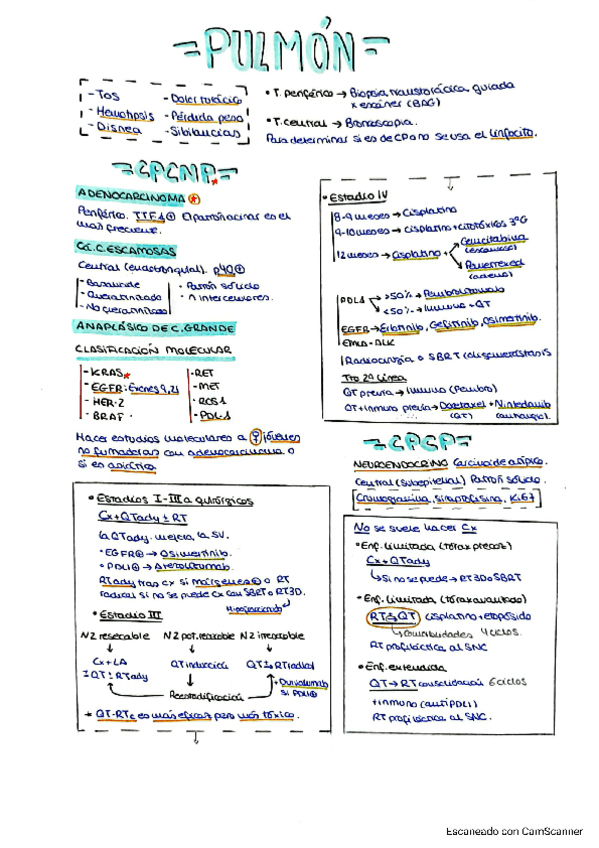 =PULMÓN=
- Tos
- Hemoptisis
- Disnea
- Dolor torácico
- Pérdida peso
- Sibilancias
• T. periférico → Biopsia transtorácica guiada
x escáner (BAG)
• T. central → Broncoscopia.
Para determinar si es de CP o no se usa el linfocito.
=CPCNP=
ADENOCARCINOMA
Periférico. TTF1⊕ El patrón acinar es el
más frecuente.
Ca. C. ESCAMOSAS
Central (endobronquial). p40⊕
- Basaloide
- Queratinizado
- No queratinizado
• Patrón sólido
• n intercelulares.
ANAPLÁSICO DE C. GRANDE
CLASIFICACIÓN MOLECULAR
- KRAS
- EGFR: Exones 9, 21
- HER-2
- BRAF
- RET
- MET
- ROS1
- PDL-1
Hacer estudios moleculares a ♀ jóvenes
no fumadoras con adenocarcinoma o
si es asiático
• Estadios I-IIIa quirúrgicos
Cx + QTady ± RT
La QTady. mejora la SV.
• EGFR⊕ → Osimertinib.
• PDL1⊕ → Atezolizumab.
RTady tras cx si márgenes⊕ o RT
radical si no se puede Cx con SBRT o RT3D.
Hipofraccionada
• Estadio III
N2 resecable N2 pot. resecable N2 irresecable
Cx + LA
± QT ± RTady
QT inducción
QT ± RTradical
+ Durvalumab
si PDL1⊕
Reestadificación
* QT-RTc es más eficaz pero más tóxico.
• Estadio IV
8-9 meses → Cisplatino
9-10 meses → Cisplatino + citotóxicos 3ºG
12 meses → Cisplatino +
Gemcitabina
(escamoso)
Pemetrexed
(adeno)
PDL1
>50% → Pembrolizumab
<50% → Inmuno + QT
EGFR → Erlotinib, Gefitinib, Osimertinib.
EML4-ALK
Radiocirugía o SBRT (oligometástasis
Tto 2ª Línea
QT previa → Inmuno (Pembro)
QT + inmuno previa → Docetaxel + Nintedanib
(QT) (antiangio).
=CPCP=
NEUROENDOCRINO Carcinoide atípico.
Central (subepitelial) Patrón sólido.
Cromogranina, sinaptofisina, Ki67
No se suele hacer Cx
• Enf. limitada (tórax precoz)
Cx + QTady
↳ Si no se puede → RT3D o SBRT
• Enf. limitada (tórax avanzado)
RT + QT cisplatino + etopósido
comorbilidades 4 ciclos.
RT profiláctica al SNC
• Enf. extendida
QT → RT consolidación 6 ciclos
+ inmuno (anti PDL1)
RT profiláctica al SNC.
Escaneado con CamScanner